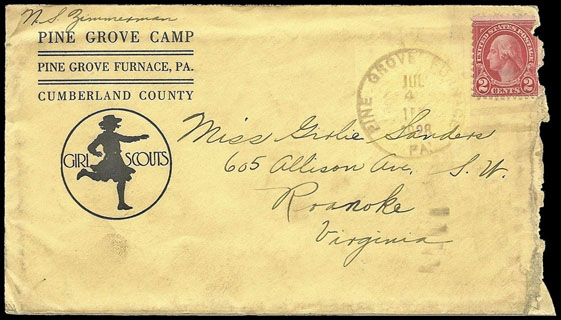 N S Zimmerman
PINE GROVE CAMP
PINE GROVE FURNACE, PA.
CUMBERLAND COUNTY
GIRL SCOUTS
PINE GROVE
JUL
4
PA.
UNITED STATES POSTAGE
2 CENTS 2
Miss Girlie Sanders
605 Allison Ave. S. W.
Roanoke
Virginia